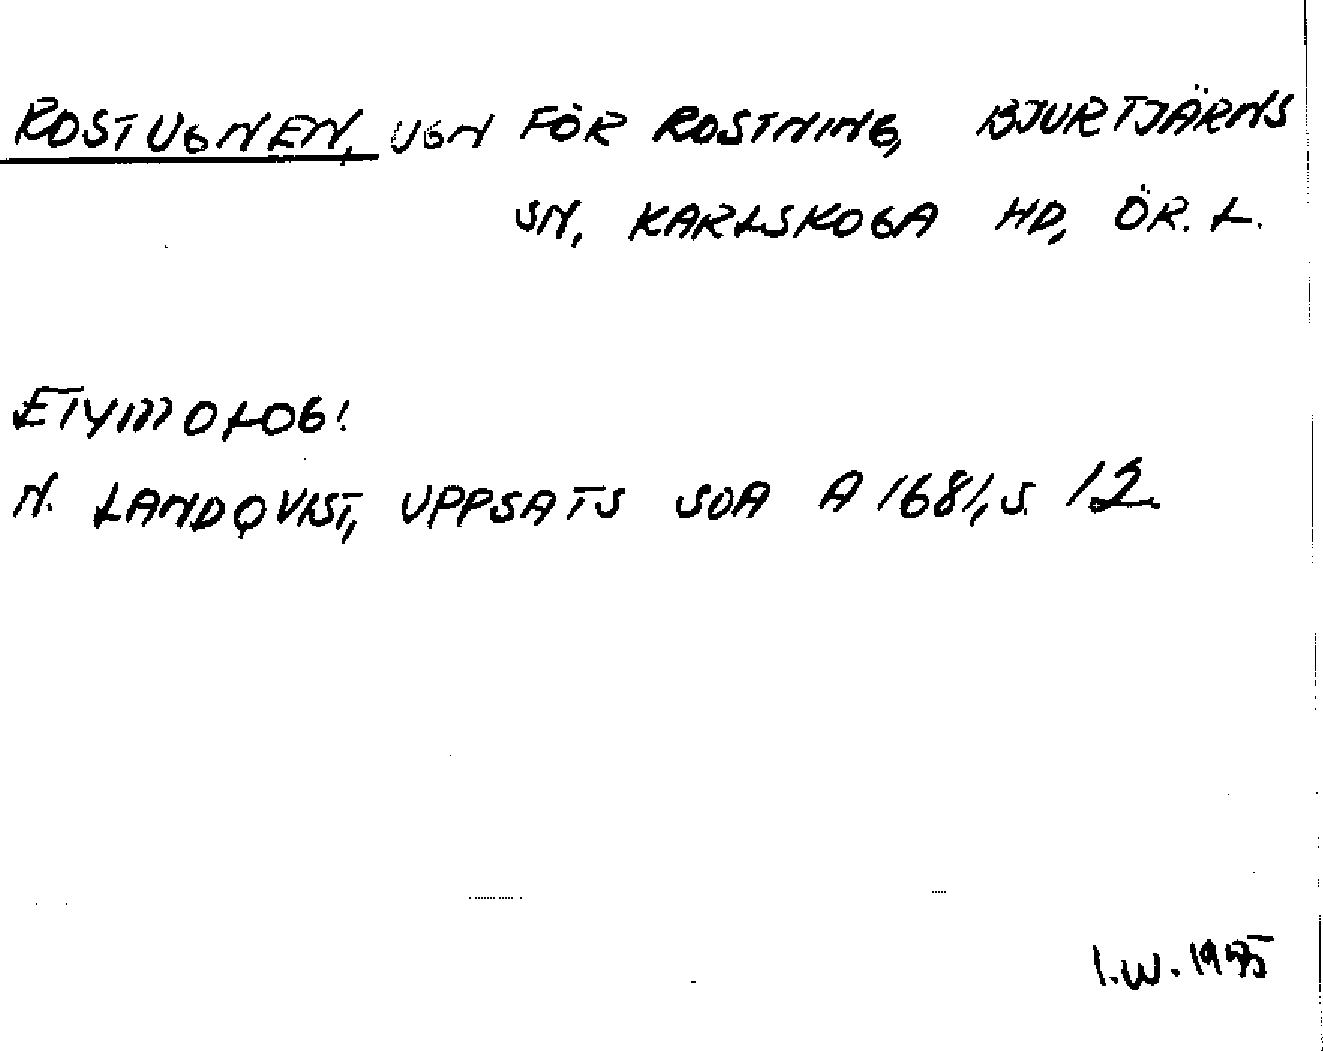 ROSTUGNEN, UGN FÖR ROSTNING, BJURTJÄRNS
SN, KARLSKOGA HD, ÖR. L.
ETYMOLOGI
N. LANDQVIST, UPPSATS SOA A 1681, S. 12
I.W.